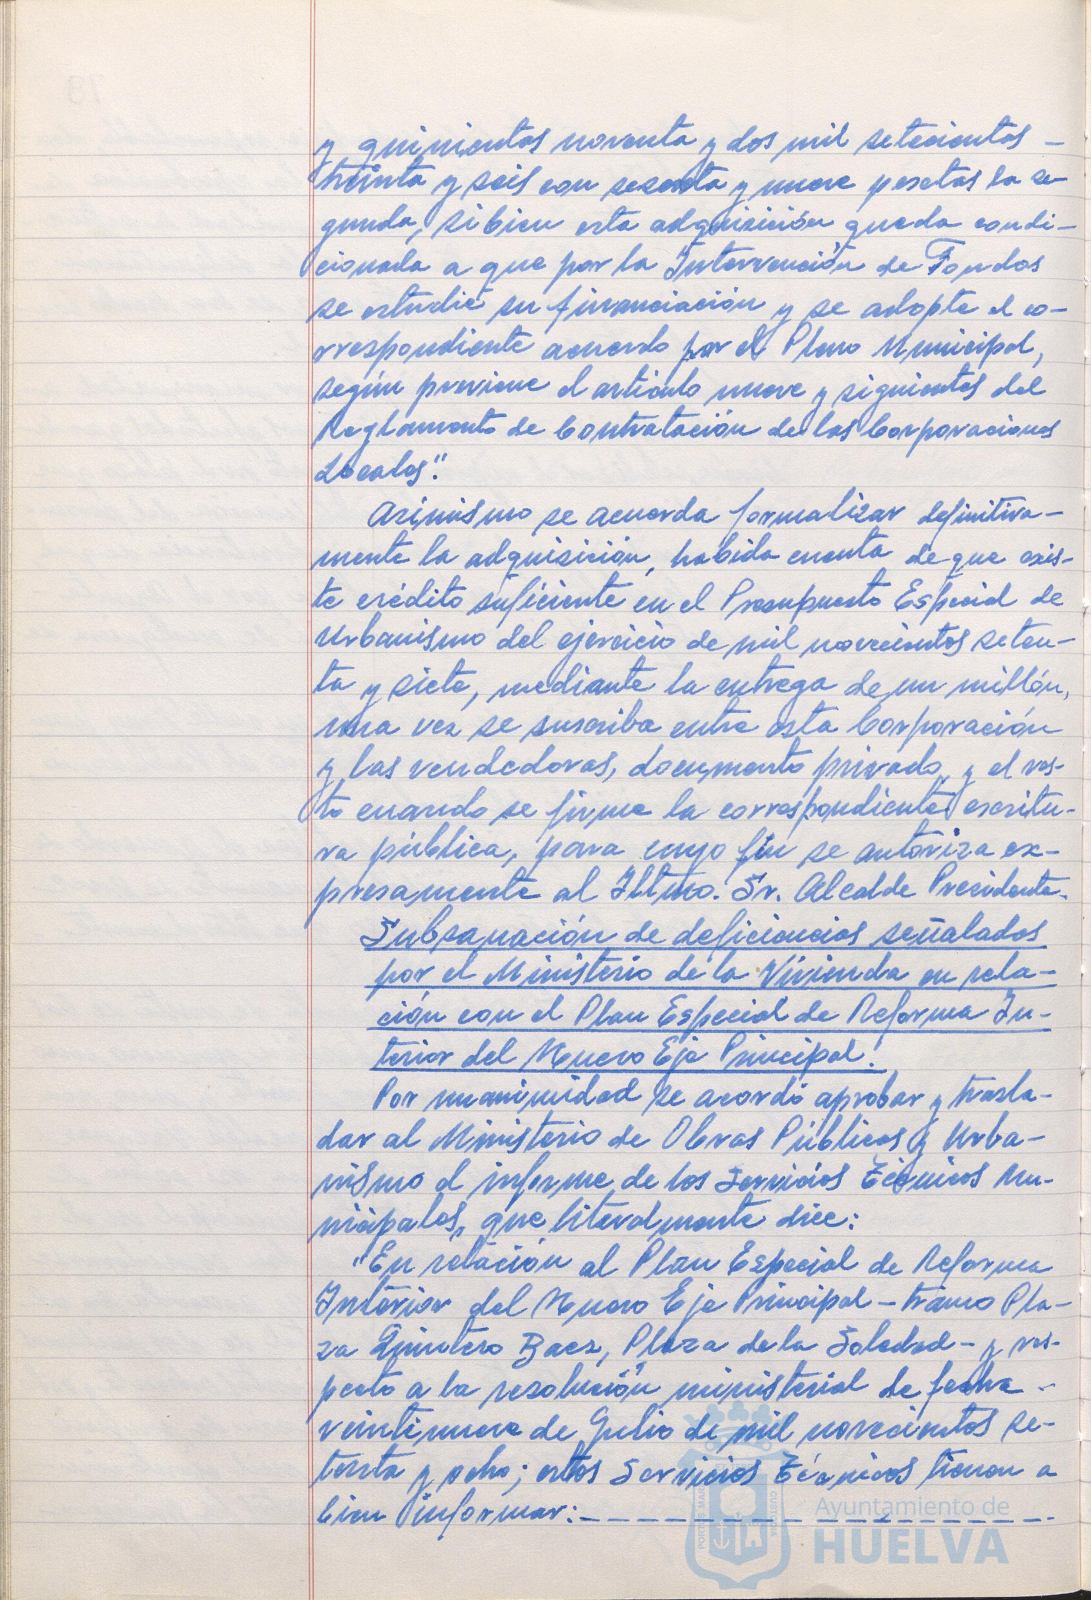 y quinientas noventa y dos mil setecientas -
treinta y seis con sesenta y nueve pesetas la se-
gunda, si bien esta adquisición queda condi-
cionada a que por la Intervención de Fondos
se estudie su financiación y se adopte el co-
rrespondiente acuerdo por el Pleno Municipal,
según previene el artículo nueve y siguientes del
Reglamento de Contratación de las Corporaciones
Locales".
Asimismo se acuerda formalizar definitiva-
mente la adquisición, habida cuenta de que exis-
te crédito suficiente en el Presupuesto Especial de
Urbanismo del ejercicio de mil novecientos seten-
ta y siete, mediante la entrega de un millón,
una vez se suscriba entre esta Corporación
y las vendedoras, documento privado, y el res-
to cuando se firme la correspondiente escritu-
ra pública, para cuyo fin se autoriza ex-
presamente al Iltmo. Sr. Alcalde Presidente.
Subsanación de deficiencias señaladas
por el Ministerio de la Vivienda en rela-
ción con el Plan Especial de Reforma In-
terior del Nuevo Eje Principal.
Por unanimidad se acordó aprobar y trasla-
dar al Ministerio de Obras Públicas y Urba-
nismo el informe de los Servicios Técnicos Mu-
nicipales, que literalmente dice:
"En relación al Plan Especial de Reforma
Interior del Nuevo Eje Principal - tramo Pla-
za Quintero Baez, Plaza de la Soledad - y res-
pecto a la resolución ministerial de fecha -
veintinueve de Julio de mil novecientos se-
tenta y ocho; estos Servicios Técnicos tienen a
bien informar: - - - - - - - - - - - - - -
Ayuntamiento de
HUELVA